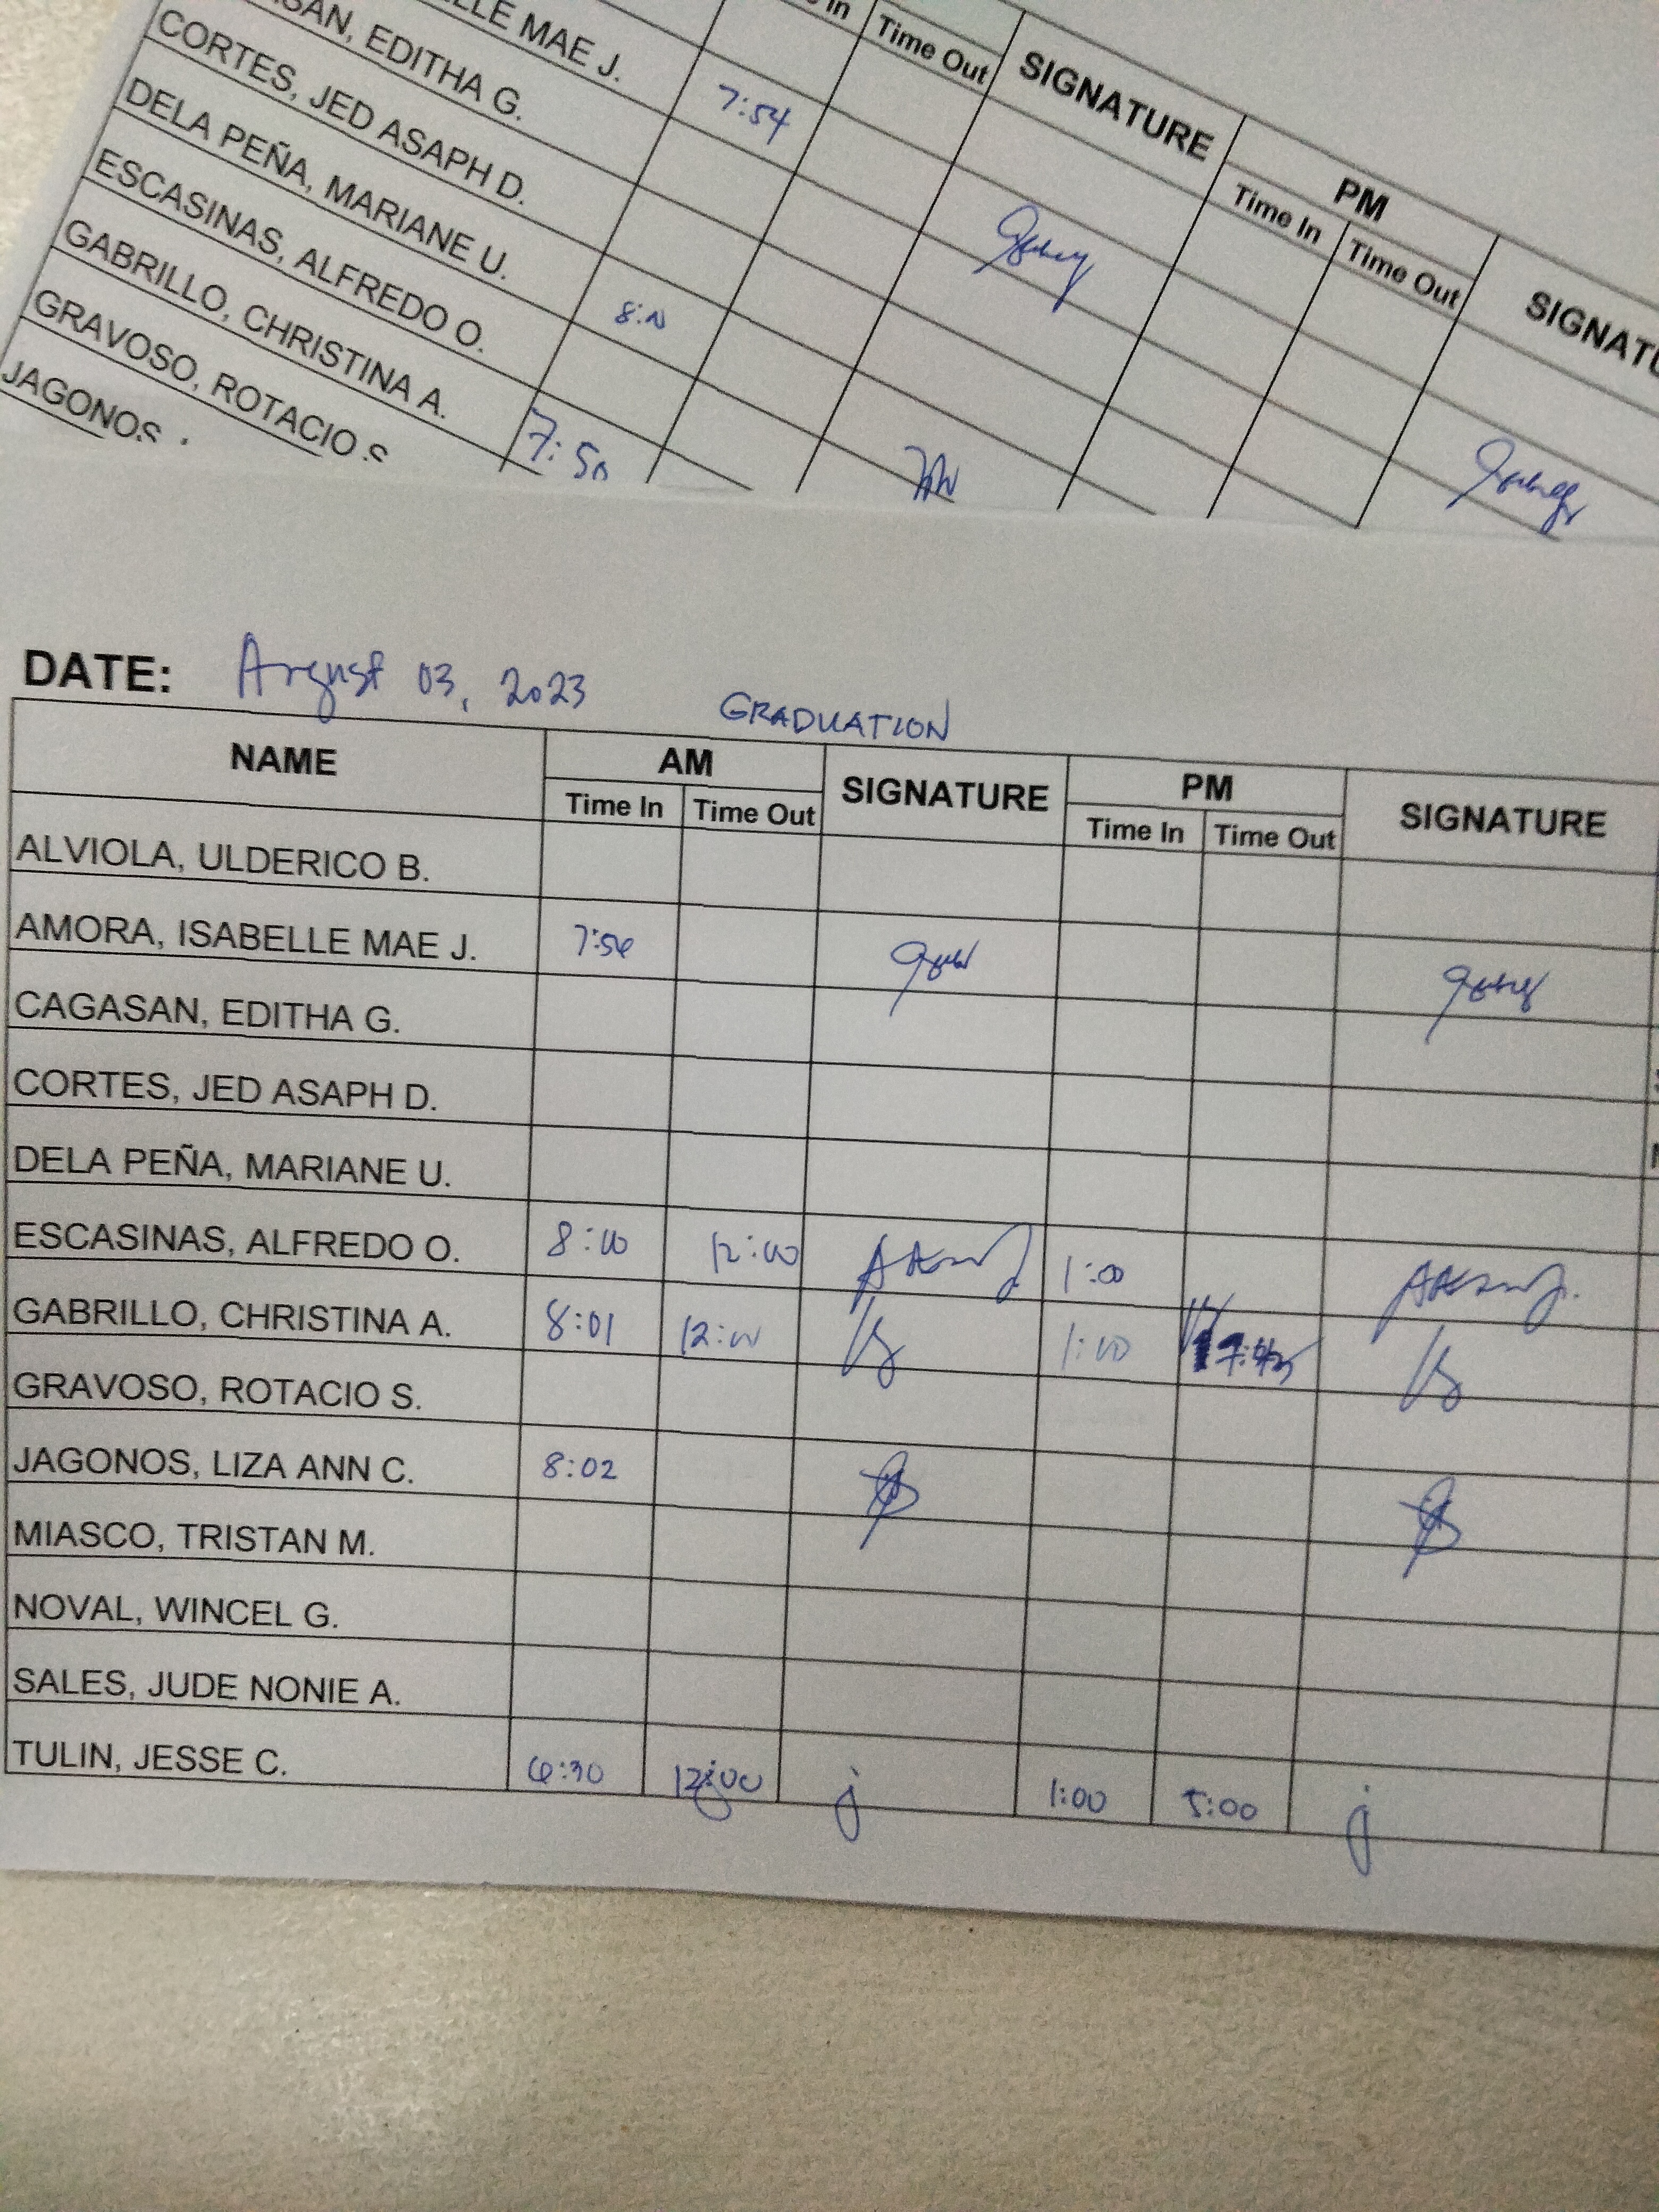 LLE MAE J. 7:54
SAN, EDITHA G.
CORTES, JED ASAPH D.
DELA PEÑA, MARIANE U.
ESCASINAS, ALFREDO O.
GABRILLO, CHRISTINA A.
GRAVOSO, ROTACIO S
JAGONOS
In Time Out SIGNATURE
PM
Time In Time Out
SIGNATU
DATE: August 03, 2023 GRADUATION
NAME AM SIGNATURE PM SIGNATURE
Time In Time Out Time In Time Out
ALVIOLA, ULDERICO B.
AMORA, ISABELLE MAE J.
CAGASAN, EDITHA G.
CORTES, JED ASAPH D.
DELA PEÑA, MARIANE U.
ESCASINAS, ALFREDO O. 8:00 12:00 1:00
GABRILLO, CHRISTINA A. 8:01 12:00 1:00
GRAVOSO, ROTACIO S.
JAGONOS, LIZA ANN C. 8:02
MIASCO, TRISTAN M.
NOVAL, WINCEL G.
SALES, JUDE NONIE A.
TULIN, JESSE C. 6:30 12:00 1:00 5:00